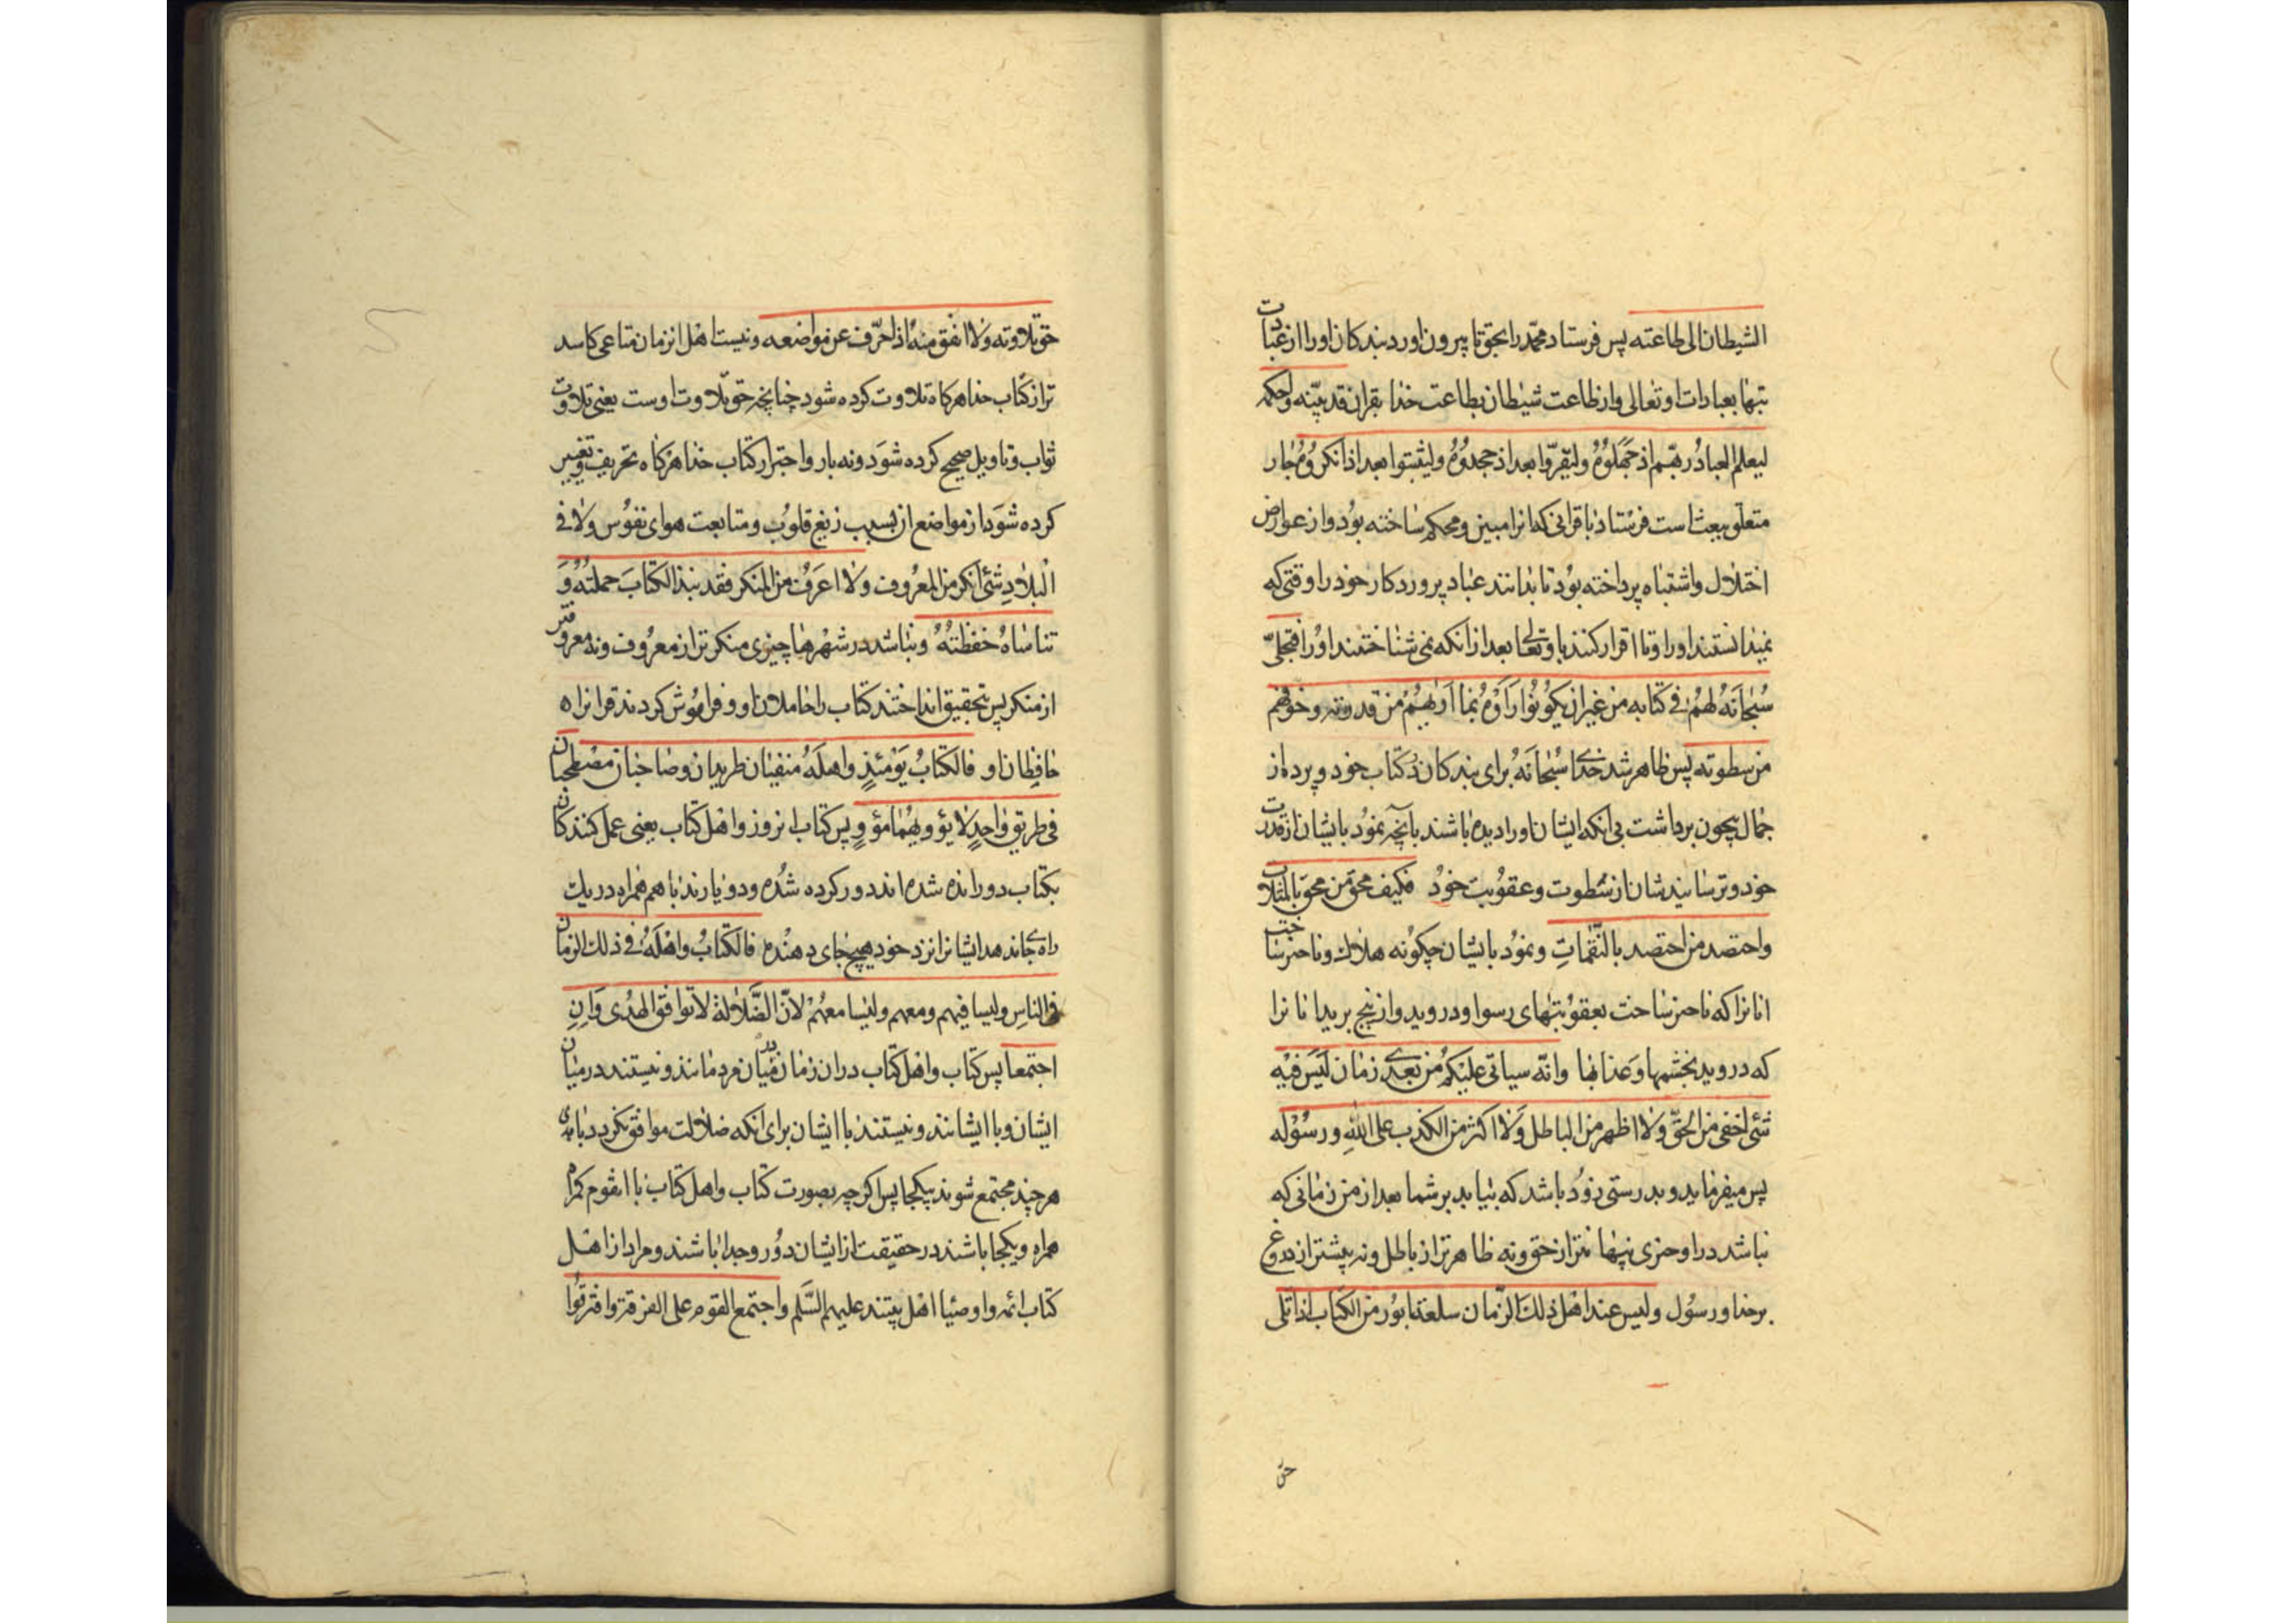 الشیطان الی طاعته پس فرستاد محمّد را بحق تا بیرون اورد بندکان او را از عبادت
بتها بعبادات او تعالی و از طاعت شیطان بطاعت خدا بقران قد بیّنه و احکمه
لیعلم العبادُ ربّهم اذ جَهَلوُهُ و لیقرّوا بعد اذ جحدوُهُ و لیثبتوا بعد اذ انکروُهُ جار
متعلق ببعث است فرستاد با قرانی که انرا مبین و محکم ساخته بوُد و از عوارض
اختلال و اشتباه پرداخته بوُد تا بدانند عباد پروردکار خود را وقتی که
نمیدانستند او را و تا اقرار کنند باو تعالی بعد از انکه نمی شناختند او را فتجلیّ
سُبحانَهُ لهمُ فی کتابه من غیر ان یکوُنوُا رَاَوهُ بما اَرٰیهُم من قدرته و خوّفهم
من سطوته پس ظاهر شد خدای سُبحانَهُ برای بندکان در کتاب خود و پرده از
جمال بیچون برداشت بی انکه ایشان او را دیده باشند بآنچه نموُد بایشان از قدرت
خود و ترسانیدشان از سَطوت و عقوُبت خوُد فکیف محق مَن محق بالمثلات
و احتصد من احتصد بالنّقماتِ و نموُد بایشان چکوُنه هلاک و ناچیز ساخت
انانرا که ناچیز ساخت بعقوُبتهای رسوا و دروید و از بیخ برید انانرا
که دروید بخشمها و عَذابها و انّه سیاتی علیکُم من بَعدی زمان لَیسَ فیه
شئی اخفی من الحقّ وَلا اظهر من الباطل وَلا اکثر من الکذب علی اللّهِ و رسوُله
پس میفرماید و بدرستی زوُد باشد که بیاید بر شما بعد از من زمانی که
نباشد در او چیزی پنهانتر از حق و نه ظاهرتر از باطل و نه بیشتر از دروغ
بر خدا و رسوُل و لیس عند اهل ذلکَ الزّمان سلعة ابوُر من الکتاب اذا تلی
حق تلاوته ولا انفق منهُ اذا حرّف عن مواضعه و نیست اهل انزمان متاعی کاسد
تر از کتاب خدا هر کاه تلاوت کرده شود چنانچه حق تلاوت اوست یعنی تلاوت
ثواب و تاویل صحیح کرده شوَد و نه با رواجتر از کتاب خدا هر کاه تحریف و تغییر
کرده شوَد از مواضع ان بسبب زیغ قلوُب و متابعت هوای نفوُس ولا فی
الْبلادِ شئی انکر من المعرُوف ولا اعرَف من المنکر فقد نبذ الکتابَ حملتهُ وَ
تناساهُ حَفَظتهُ و نباشد در شهرها چیزی منکرتر از معرُوف و نه معروفتر
از منکر پس بتحقیق انداختند کتاب را حاملان او و فراموُش کردند قرانرا
حافِظان او فالکتابُ یَوْمئذٍ و اهلَهُ منفیّان طریدان و صاحبان مصْطحبان
فی طریقٍ واحِدٍ لا یؤویهُمٰا مؤوٍ پس کتاب انروز و اهل کتاب یعنی عمل کنندکان
بکتاب دور رانده شده اند دور کرده شدُه و دو یارند با هم همراه در یک
راه که جا ندهد ایشانرا نزد خود هیچ جای دهنْده فالکتابُ و اهْلَهُ فی ذلک الزمان
فی الناسِ و لیسا فیهم و معهم و لیسا معهُمْ لانّ الضَّلالة لا توافق الهُدی وَاِنِ
اجتمعا پس کتاب و اهل کتاب در ان زمان در میان مردمانند و نیستند در میان
ایشان و با ایشانند و نیستند با ایشان برای انکه ضلالت موافق نکردد با هدی
هر چند مجتمع شوند بیکجا پس اکرچه بصورت کتاب و اهل کتاب با انقوم کمراه
همراه و یکجا باشند در حقیقت از ایشان دوُر و جدا باشند و مراد از اهل
کتاب ائمه و اوصیا اهل بیتند علیهم السَّلم و اجتمع القوم علی الفرقة و افترقوُا